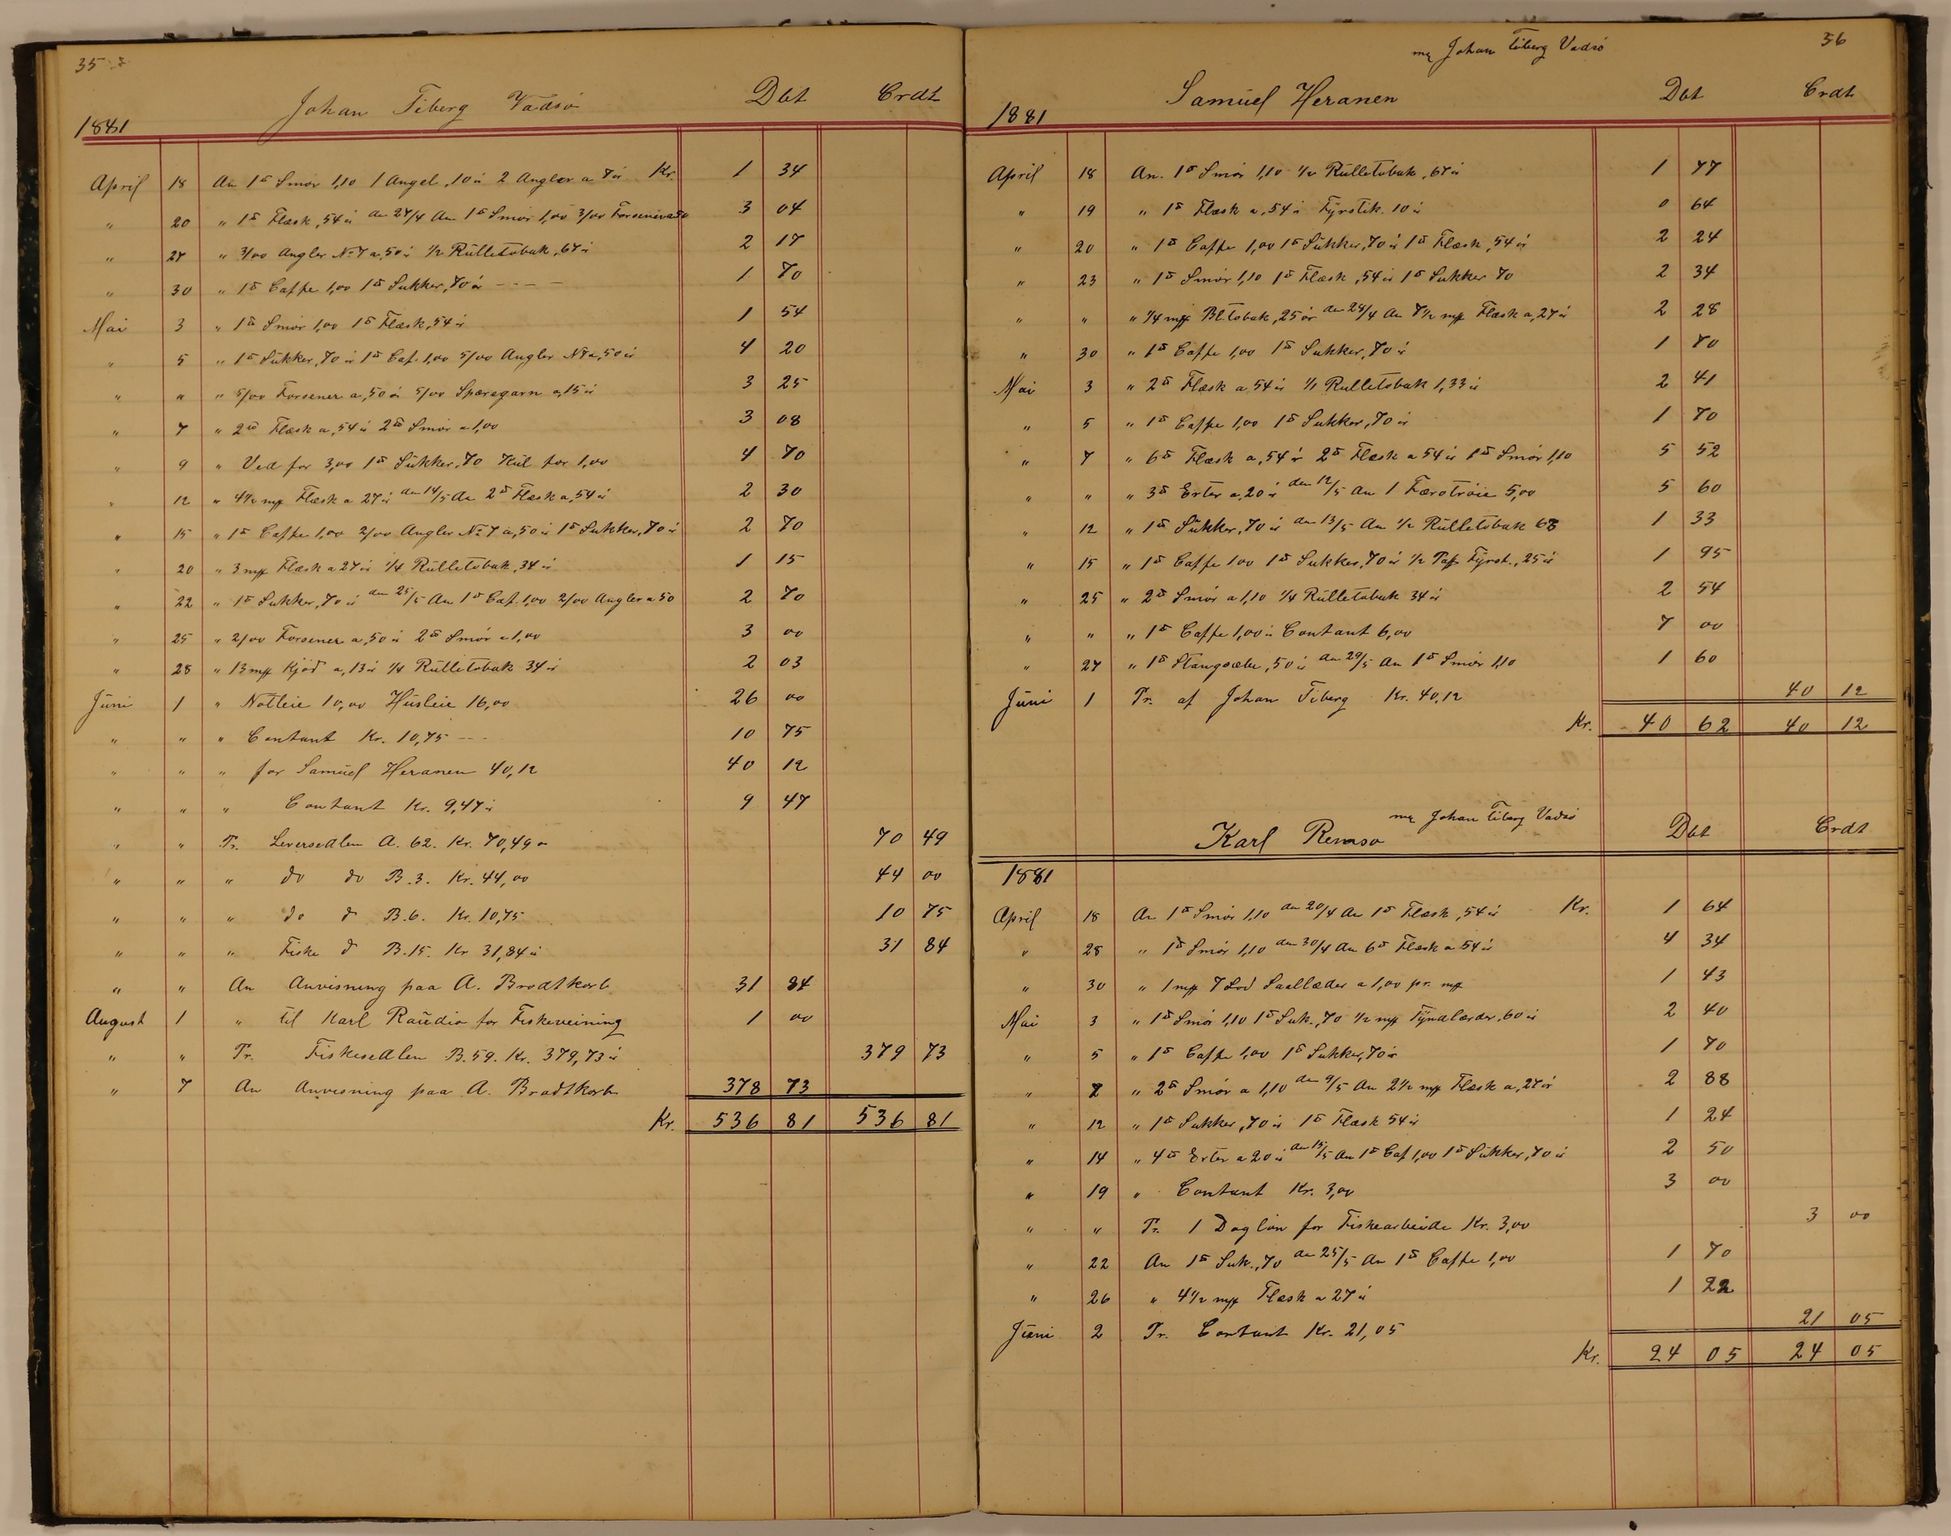 35
Johan Tiberg Vadsö Dbt Crdt
1881
April 18 An 1 ℔ Smör 1,10 1 Angel ,10 ö 2 Angler a 7 ör Kr. 1 34
" 20 " 1 ℔ Flæsk ,54 ör den 24/4 An 1 ℔ Smör 1,00 3/00 3 04
" 27 " 3/00 Angler No 7 a ,50 ö 1/2 Rülletobak ,67 ör 2 17
" 30 " 1 ℔ Caffe 1,00 1 ℔ Sukker ,70 ör 1 70
Mai 3 " 1 ℔ Smör 1,00 1 ℔ Flæsk ,54 ör 1 54
" 5 " 1 ℔ Sukker ,70 ör 1 ℔ Caf. 1,00 5/00 Angler No 7 a ,50 ör 4 20
" " " 5/00 Forsener a ,50 ör 5/00 Spæregarn a ,15 ör 3 25
" 7 " 2 ℔ Flæsk a ,54 ör 2 ℔ Smör a 1,00 3 08
" 9 " Ved for 3,00 1 ℔ Sukker ,70 Kül for 1,00 4 70
" 12 " 4 1/2 mrk Flæsk a 27 ör den 14/5 An 2 ℔ Flæsk a ,54 ör 2 30
" 15 " 1 ℔ Caffe 1,00 2/00 Angler No 7 a ,50 ör 1 ℔ Sukker ,70 ör 2 70
" 20 " 3 mrk Flæsk a 27 ör 1/4 Rülletobak ,34 ör 1 15
" 22 " 1 ℔ Sukker ,70 ör den 25/5 An 1 ℔ Caf. 1,00 2/00 Angler a 50 2 70
" 25 " 2/00 Forsener a ,50 ör 2 ℔ Smör a 1,00 3 00
" 28 " 13 mrk Kjöd a ,13 ör 1/4 Rülletobak 34 ör 2 03
Jüni 1 " Notleie 10,00 Hüsleie 16,00 26 00
" " " Contant Kr. 10,75 10 75
" " " for Samüel Heranen 40,12 40 12
" " " Contant Kr. 9,47 ör 9 47
" " Tr. Leversedlen A. 62. Kr. 70,49 ö 70 49
" " " do do B. 3. Kr. 44,00 44 00
" " " do d B. 6. Kr. 10,75 10 75
" " " Fiske d B. 15. Kr 31,84 ör 31 84
" " An Anvisning paa A. Brodtkorb 31 84
August 1 " til Karl Raüdio for Fiskeveining 1 00
" " Tr. Fiskesedlen B. 59. Kr. 379,73 ör 379 73
" 7 An Anvisning paa A. Brodtkorb 378 73
Kr. 536 81 536 81
36
Johan Tiberg Vadsö
Samüel Heranen Dbt Crdt
1881
April 18 An. 1 ℔ Smör 1,10 1/2 Rülletobak ,67 ör 1 77
" 19 " 1 ℔ Flæsk a ,54 ör Fyrstik. 10 ör 0 64
" 20 " 1 ℔ Caffe 1,00 1 ℔ Sükker ,70 ör 1 ℔ Flæsk ,54 ör 2 24
" 23 " 1 ℔ Smör 1,10 1 ℔ Flæsk ,54 ör 1 ℔ Sukker 70 2 34
" " " 1/4 mrk Bltobak ,25 ör den 24/4 An 7 1/2 mrk Flæsk a ,27 ör 2 28
" 30 " 1 ℔ Caffe 1,00 1 ℔ Sukker ,70 ör 1 70
Mai 3 " 2 ℔ Flæsk a ,54 ör 1/1 Rulletobak 1,33 ör 2 41
" 5 " 1 ℔ Caffe 1,00 1 ℔ Sukker ,70 ör 1 70
" 7 " 6 ℔ Flæsk a ,54 ör 2 ℔ Flæsk a 54 ör 1 ℔ Smör 1,10 5 52
" " " 3 ℔ Erter a ,20 ör den 12/5 An 1 Færötröie 5,00 5 60
" 12 " 1 ℔ Sükker ,70 ör den 13/5 An 1/2 Rülletobak 63 1 33
" 15 " " 1 ℔ Caffe 1 00 1 ℔ Sukker ,70 ör 1/2 Pak Fyrst. ,25 ör 1 95
" 25 " 2 ℔ Smör a 1,10 1/4 Rülletobak 34 ör 2 54
" " " 1 ℔ Caffe 1,00 ö Contant 6,00 7 00
" 27 " 1 ℔ Stangsæbe ,50 ör den 29/5 An 1 ℔ Smör 1,10 1 60
Jüni 1 Tr. af Johan Tiberg Kr. 40,12 40 12
Kr. 40 62 40 12
Johan Tiberg Vadsö
Karl Remso Dbt Crdt
1881
April 18 An 1 ℔ Smör 1,10 den 20/4 An 1 ℔ Flæsk ,54 ör Kr. 1 64
" 28 " 1 ℔ Smör 1,10 den 30/4 An 6 ℔ Flæsk a 54 ör 4 34
" 30 " 1 mrk 7 Lod Saallæder a 1,00 pr. mrk 1 43
Mai 3 " 1 ℔ Smör 1,10 1 ℔ Suk. ,70 1/2 mrk Tyndlæder ,60 ör 2 40
" 5 " 1 ℔ Caffe 1,00 1 ℔ Sukker ,70 ör 1 70
" 7 " 2 ℔ Smör a 1,10 den 9/5 An 2 1/2 mrk Flæsk a ,27 ör 2 88
" 12 " 1 ℔ Sukker ,70 ör 1 ℔ Flæsk 54 ör 1 24
" 14 " 4 ℔ Erter a 20 ör den 15/5 An 1 ℔ Caf 1,00 1 ℔ Sukker ,70 ör 2 50
" 19 " Contant Kr. 3,00 3 00
" " Tr. 1 Daglön for Fiskearbeide Kr. 3,00 3 00
" 22 An 1 ℔ Suk. ,70 den 25/5 An 1 ℔ Caffe 1,00 1 70
" 26 " 4 1/2 mrk Flæsk a 27 ör 1 22
Jüni 2 Tr. Contant Kr. 21,05 21 05
Kr. 24 05 24 05